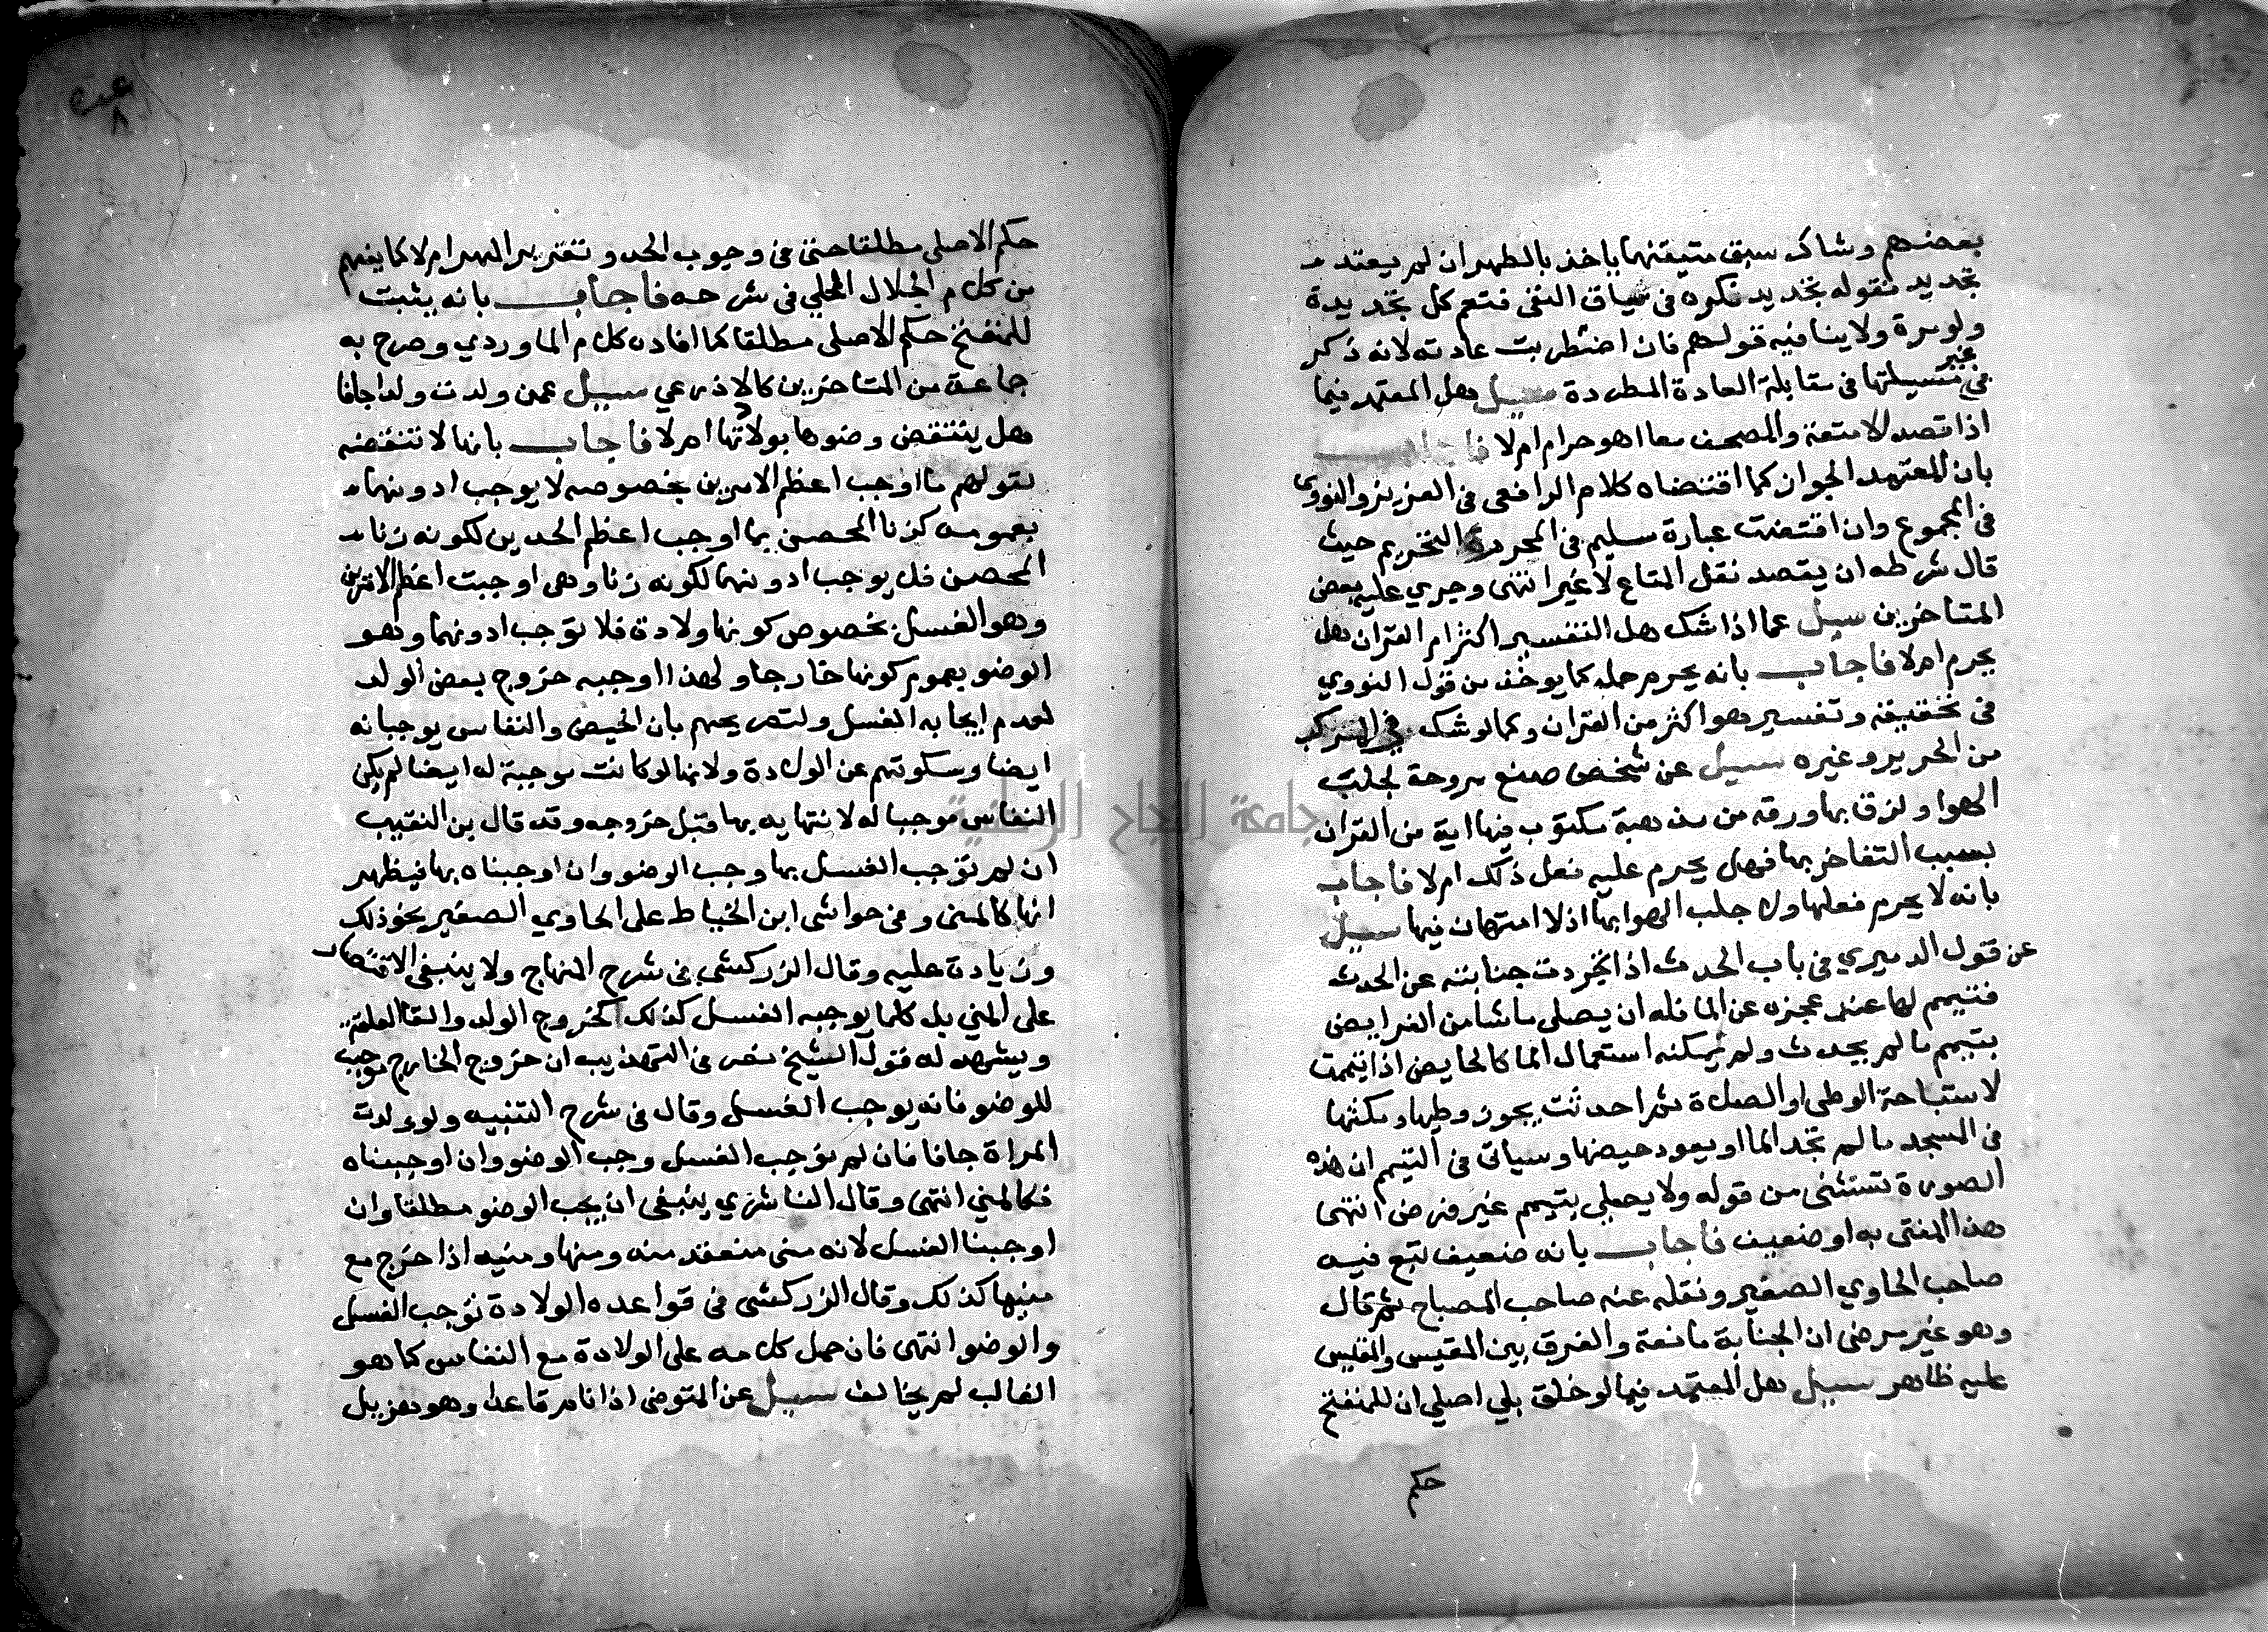 بعضهم وشاك سبق متيقنها ياخذ بالطهران لم يعتد
تجديد فقوله تجديد نكره في سياق النفي فتعم كل تجديدة
ولو مرة ولا ينافيه قولهم فان اضطربت عادته لانه ذكر
غير
في مسيلتها في مقابلة العادة المطردة سيل هل المعتمد فيما
اذا قصد الامتعة والمصحف معا اهو حرام ام لا فاجاب
بان المعتمد الجواز كما اقتضاه كلام الرافعي في العزيز والنووي
في المجموع وان اقتضت عبارة سليم في المجرد التحريم حيث
قال شرطه ان يقصد نقل المتاع لا غير انتهى وجري عليه بعض
المتاخرين سيل عما اذا شك هل التفسير اكثر ام القران هل
يحرم ام لا فاجاب بانه يحرم حمله كما يوخذ من قول النووي
في تحقيقه وتفسير هو اكثر من القران وكما لو شك في المركب
من الحرير وغيره سيل عن شخص صنع مروحة لجلب
الهوا ولزق بها ورقه من مذهبة مكتوب فيها اية من القران
بسبب التفاخر بها فهل يحرم عليه فعل ذلك ام لا فاجاب
بانه لا يحرم فعلها ولا جلب الهوا بها اذ لا امتهان فيها سيل
عن قول الدميري في باب الحدث اذا تجردت جنابته عن الحدث
فتيمم لها عند عجزه عن الما فله ان يصلي ما شا من الفرايض
بتيمم ما لم يحدث ولم يمكنه استعمال الما كالحايض اذا تيممت
لاستباحة الوطي او الصلاة ثم احدثت يجوز وطيها ومكثها
في المسجد ما لم تجد الما او يعود حيضها وسياتي في التيمم ان هذه
الصورة تستثنى من قوله ولا يصلي بتيمم غير فرض انتهى
هذا المفتى به او ضعيف فاجاب بانه ضعيف تبع فيه
صاحب الحاوي الصغير ونقله عنه صاحب المصباح ثم قال
وهو غير مرضي ان الجنابة مانعة والفرق بين المقيس والمقيس
عليه ظاهر سيل هل المعتمد فيما لو خلق بلي اصلي ان للمنفتح
حكم
حكم الاصلي مطلقا حتى في وجوب الحد وتقرير المهر ام لا كما يفهم
من كلام الجلال المحلي في شرحه فاجاب بانه يثبت
للمنفتح حكم الاصلي مطلقا كما افاده كلام الماوردي وصرح به
جماعة من المتاخرين كالاذرعي سيل عمن ولدت ولدا جافا
هل ينتقض وضوها بولادتها ام لا فاجاب بانها لا تنقضه
لقولهم ما اوجب اعظم الامرين بخصوصه لا يوجب ادونهما
بعمومه كزنا المحصن بما اوجب اعظم الحدين لكونه زنا
المحصن فلا يوجب ادونهما لكونه زنا وهي اوجبت اعظم الامرين
وهو الغسل بخصوص كونها ولادة فلا توجب ادونهما وهو
الوضو بعموم كونها خارجا ولهذا اوجبه خروج بعض الولد
لعدم ايجابه الغسل ولتصريحهم بان الحيض والنفاس يوجبانه
ايضا وسكوتهم عن الولادة ولانها لو كانت موجبة له ايضا لم يكن
النفاس موجبا له لانتهايه بها قبل خروجه وقد قال بن النقيب
ان لم توجب الغسل بها وجب الوضو وان اوجبناه بها فيظهر
انها كالمني وفي حواشي ابن الخياط على الحاوي الصغير نحو ذلك
وزيادة عليه وقال الزركشي في شرح المنهاج ولا ينبغي الاقتصار
على المني بل كلما يوجبه الغسل كذلك كخروج الولد والقا العلقة
ويشهد له قول الشيخ نصر في التهذيب ان خروج الخارج موجب
للوضو فانه يوجب الغسل وقال في شرح التنبيه ولو ولدت
المراة جافا فان لم نوجب الغسل وجب الوضو وان اوجبناه
فكالمني انتهى وقال الناشري ينبغي ان يجب الوضو مطلقا وان
اوجبنا الغسل لانه مني منعقد منه ومنها ومنيه اذا خرج مع
منيها كذلك وقال الزركشي في قواعده الولادة توجب الغسل
والوضو انتهى فان حمل كلامه على الولادة مع النفاس كما هو
الغالب لم يخالف سيل عن المتوضي اذا نام قاعدا وهو هزيل
جامعة النجاح الوطنية